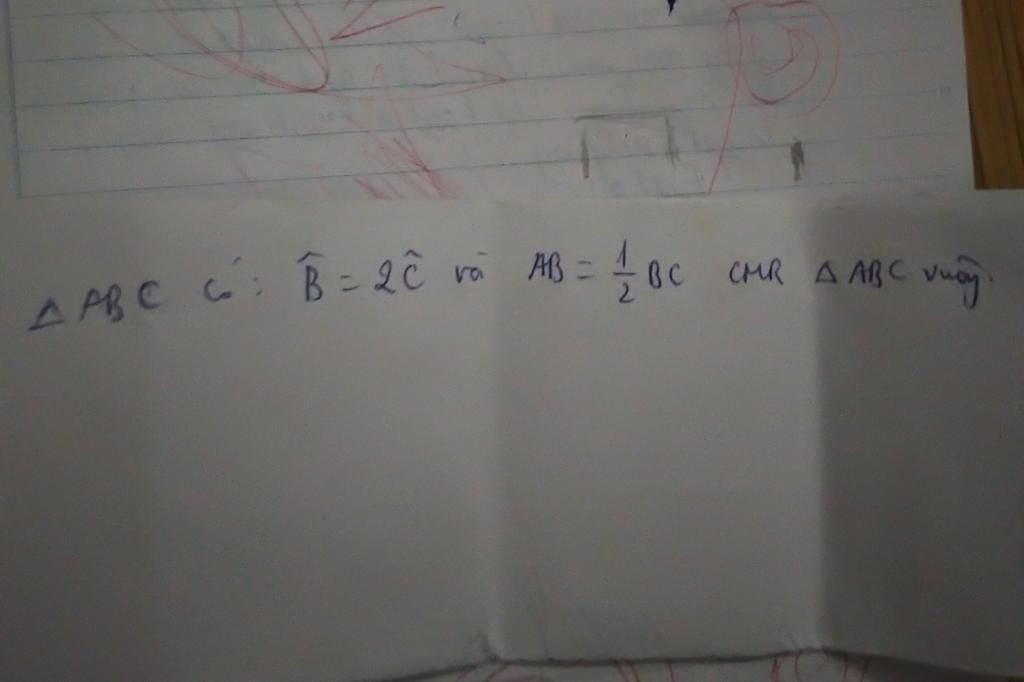 △ ABC có: B̂ = 2Ĉ và AB = 1/2 BC CMR △ ABC vuông.